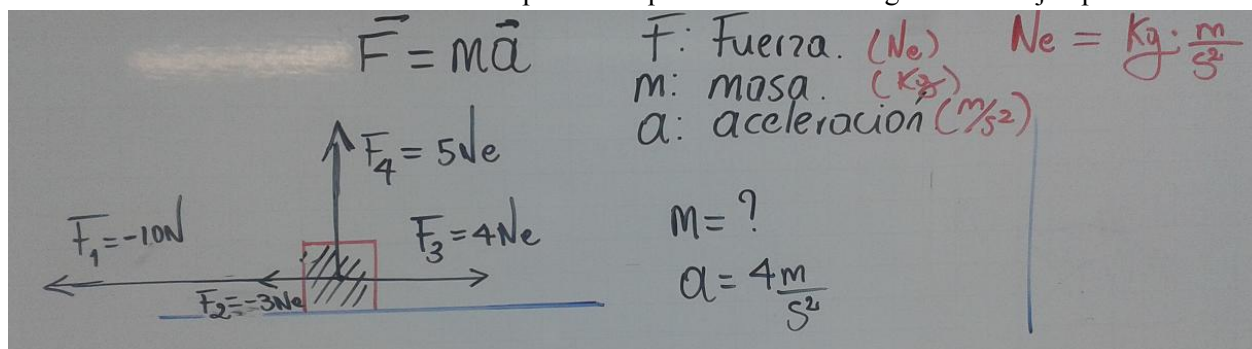 F = ma
F: Fuerza. (Ne)
m: masa. (Kg)
a: aceleración (m/s²)
Ne = Kg · m/s²
F₄ = 5Ne
F₁ = -10N
F₃ = 4Ne
F₂ = -3Ne
m = ?
a = 4 m/s²